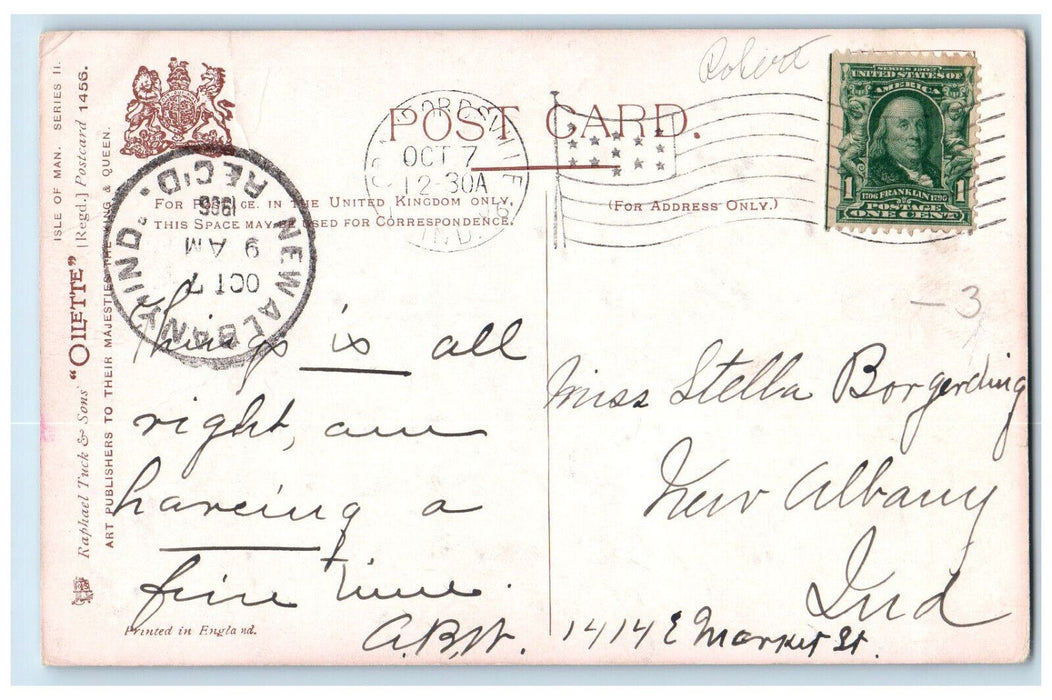 Robert
POST CARD.
CRAWFORDSVILLE
OCT 7
12-30A
IND.
SERIES 1902
UNITED STATES OF
AMERICA
1 1706 FRANKLIN 1790 1
POSTAGE
ONE CENT
FOR POSTAGE IN THE UNITED KINGDOM ONLY,
THIS SPACE MAY BE USED FOR CORRESPONDENCE.
(FOR ADDRESS ONLY.)
NEW ALBANY, IND.
OCT 7
9 AM
1906
REC'D.
ISLE OF MAN. SERIES II.
Raphael Tuck & Sons' "OILETTE" [Regd.] Postcard 1456.
ART PUBLISHERS TO THEIR MAJESTIES THE KING & QUEEN.
Things is all
right, am
hav­eing a
fine time.
A.B.W.
-3
Miss Stella Borgerding
New Albany
Ind
1414 E Market St.
Printed in England.